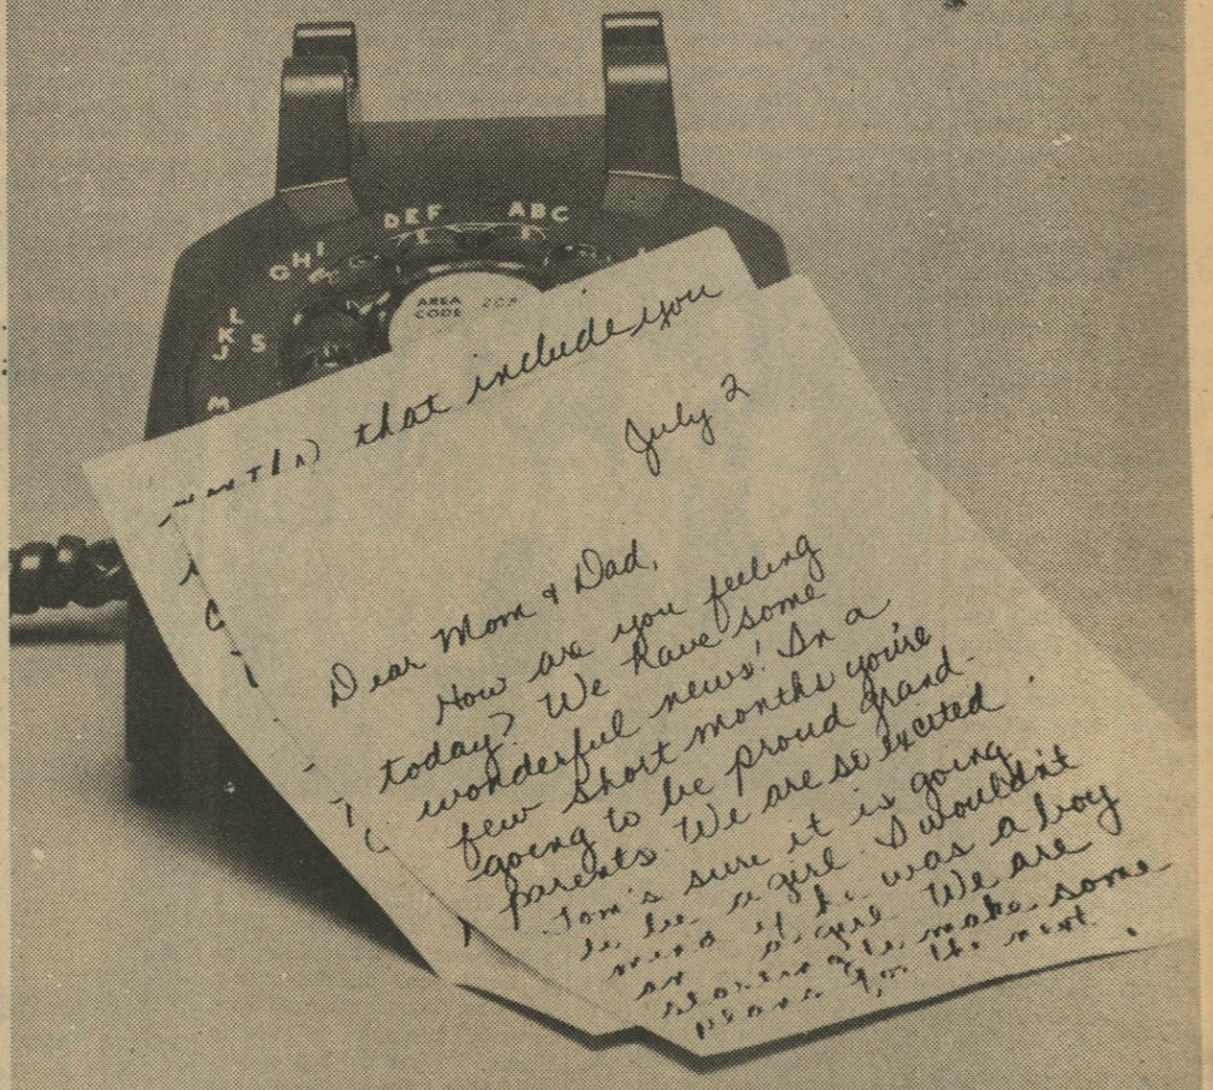 ABC
DEF
GHI
JKL 5
M
AREA
CODE
that include you
July 2
Dear Mom & Dad,
How are you feeling
today? We have some
wonderful news! In a
few short months you're
going to be proud grand-
parents. We are so excited.
Tom's sure it is going
to be a girl. I wouldn't
mind if it was a boy
or a girl. We are
starting to make some
plans for the next